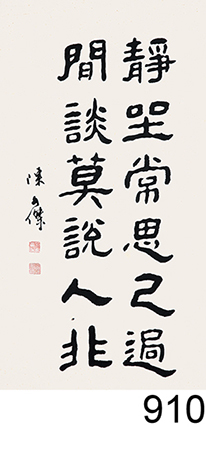 靜坐常思己過
閒談莫說人非
陳文傑
910